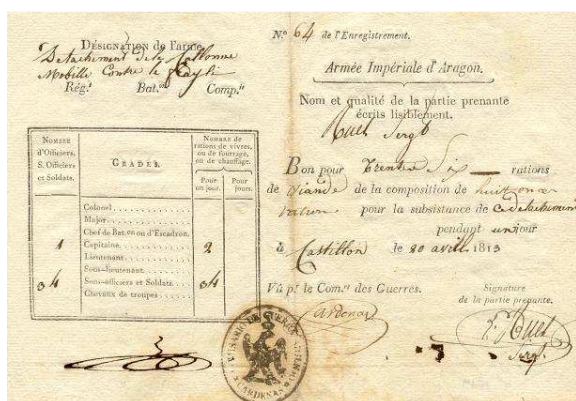 DÉSIGNATION de l'arme
Detachement de la Collonne
Mobille Contre le
Rég.t Bat.on Comp.ie
NOMBRE d'Officiers, S. Officiers et Soldats.
GRADES.
NOMBRE de rations de vivres, ou de fourrage, ou de chauffage.
Pour un jour.
Pour jours.
Colonel
Major
Chef de Bat.on ou d'Escadron.
1 Capitaine 2
Lieutenant
Sous-lieutenant
34 Sous-officiers et Soldats 34
Chevaux de troupes
N.o 64 de l'Enregistrement.
Armée Impériale d'Aragon.
Nom et qualité de la partie prenante
écrits lisiblement.
Huet Sergt
Bon pour Trentre Six rations
de Viande de la composition de huit onces
ration pour la subsistance de ce detachement
pendant un jour
à Castillon le 20 avril 1813
Vû p.r le Com.re des Guerres.
Cardenas
Signature
de la partie prenante.
Huet
Sergt.
COMISARIO DE GUERRA
CARDENAS